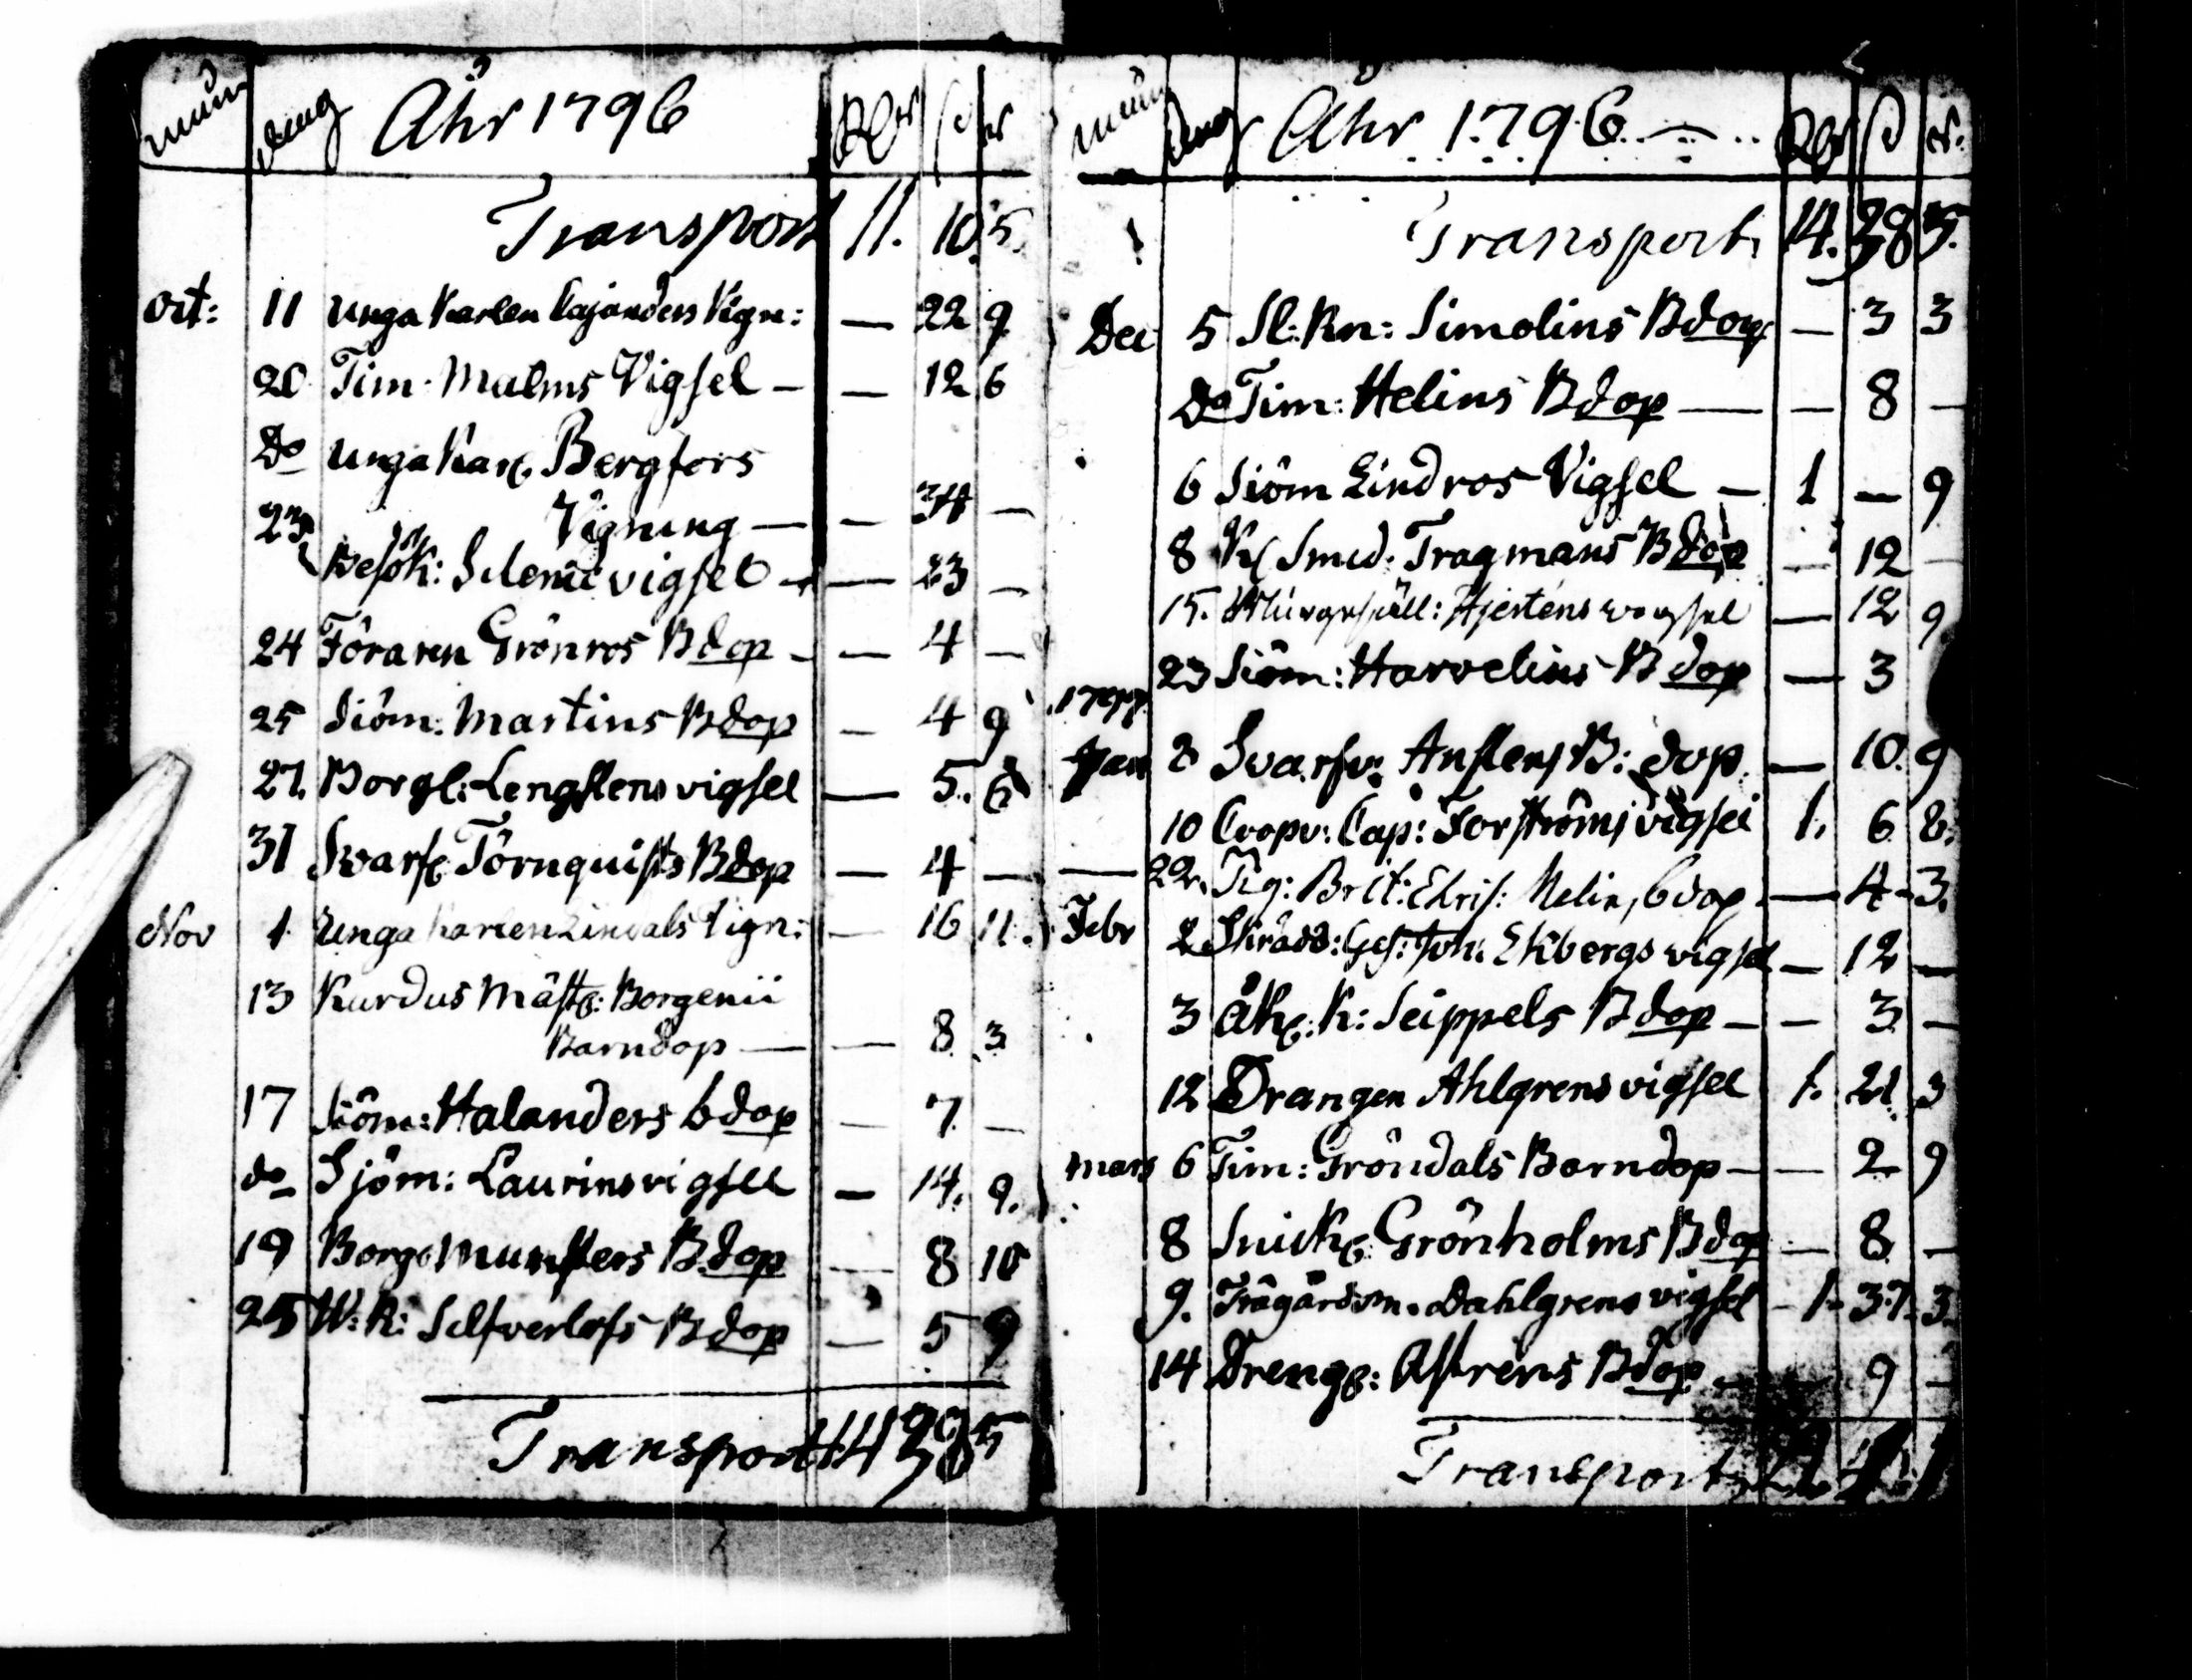 Åhr 1796
Transport 11. 10. 5.
Oct: 11 Unga Karlen Cajanders Vign: — 22 9
20 Tim. Malms Vigsel — — 12 6
Do Unga Kar: Bergfors
Vigning — — 34 —
23 Besök: vigsel — — 23 —
24 Föraren Grönros Bdop — — 4 —
25 Siöm: Martins Bdop — 4 9
27. Borgl: Lengstens vigsel — 5. 6
31 Svarf: Törnquists Bdop — 4 —
Nov 1 Unga Karlen Lindals Vign: — 16 11.
13 Kardus Mäst: Borgenii
Barndop — — 8 3
17 Siöm: Halanders bdop — 7 —
do Sjöm: Laurins vigsel — 14. 9.
19 Borg: Munsters Bdop — 8 10
25 W: K: Selfverlofs Bdop — 5 9
Transport 14 38 5
Åhr 1796
Transport 14. 38 5.
Dec 5 Sl: Kn: Simolins Bdop — 3 3
Do Tim: Helins Bdop — — 8 —
6 Siöm Lindros Vigsel — 1 — 9
8 Kl Smed. Tragmans Bdop — 12 —
15. Hjerténs wigsel — 12 9
23 Siöm: Harvelins Bdop — 3
1797
Jan 8 Svarfv: B: dop. — 10. 9
10 Coopv: Cap: Forströms vigsel 1. 6 8.
22. Pig: Brit: Chris: Melin, bdop — 4 - 3.
Febr 2 Skrädd: Ges: Joh: Ekbergs vigsel — 12 —
3 Åk: K: Seippels Bdop — — 3 —
12 Drangen Ahlgrens vigsel 1. 21. 3
Mars 6 Tim: Gröndals Barndop — — 2 9
8 Snick: Grönholms Bdop — 8 —
9. Trägårdsm. Dahlgrens vigsel - 1. 37. 3.
14 Dreng: Astréns Bdop — 9 —
Transport